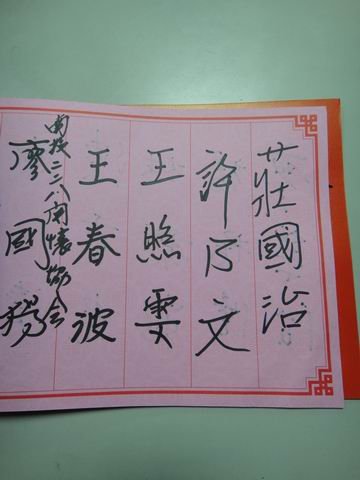 莊國治
許乃文
王照雯
王春波
南投二二八關懷協會
廖國揚